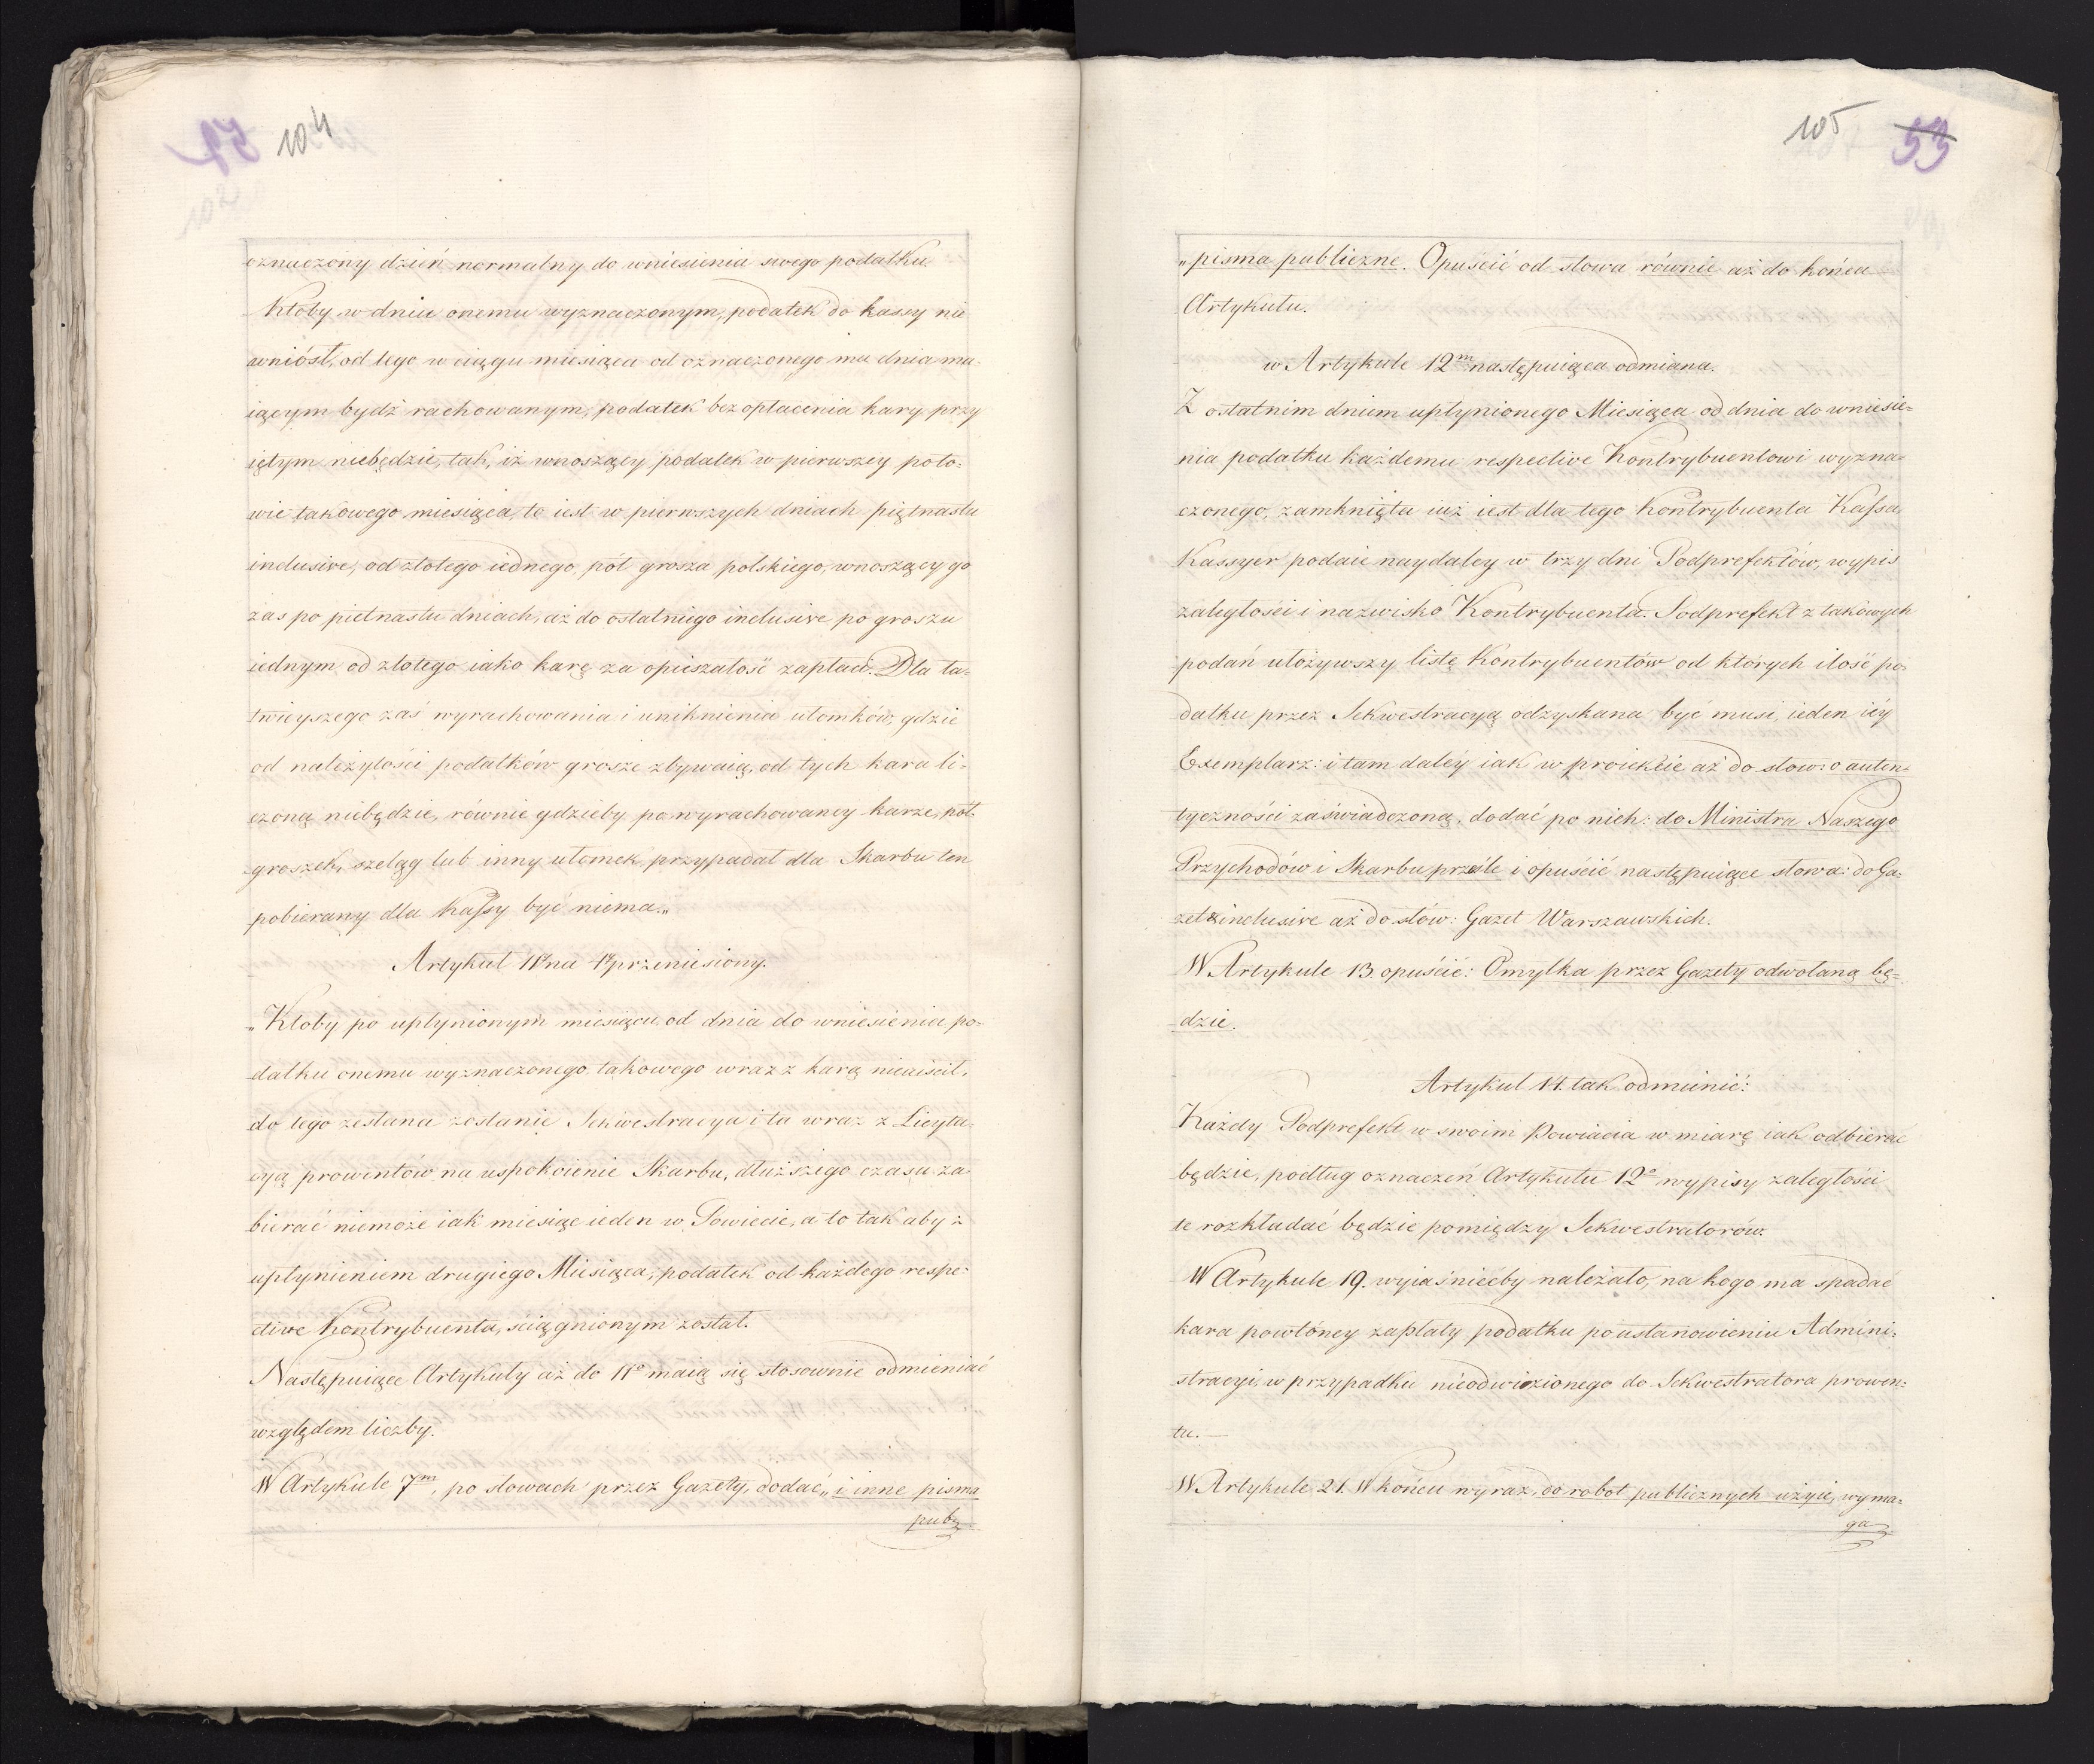 104
oznaczony dzień normalny do wniesienia swego podatku.
Ktoby w dniu onemu wyznaczonym, podatek do kassy nie
wniósł, od tego w ciągu miesiąca od oznaczonego mu dnia ma
iącym bydź rachowanym, podatek bez opłacenia kary przy
iętym niebędzie, tak, iż wnoszący podatek w pierwszey poło=
wie takowego miesiąca, to iest w pierwszych dniach piętnastu
inclusive, od złotego iednego pół grosza polskiego, wnoszący go
zas po pietnastu dniach, aż do ostatniego inclusive po groszu
iednym od złotego iako karę za opieszałość zapłaci. Dla ła=
twieyszego zaś wyrachowania i uniknienia ułomków, gdzie
od należytości podatków grosze zbywaią, od tych kara li=
czoną niebędzie, równie gdzieby po wyrachowaney karze, pół
groszek, szeląg lub inny ułomek przypadał dla Skarbu ten
pobierany dla Kassy być niema.„
Artykuł 18 na 4 przeniesiony.
„Ktoby po upłynionym miesiącu od dnia do wniesienia po=
datku onemu wyznaczonego takowego wraz z karą nieiścił,
do tego zesłana zostanie Sekwestracya i ta wraz z Licyta
cyą prowentów na uspokoienie Skarbu, dłuższego czasu za=
bierać niemoże iak miesiąc ieden w Powiecie, a to tak aby z
upłynieniem drugiego Miesiąca, podatek od każdego respe=
ctive Kontrybuenta, ściągnionym został.
Następuiące Artykuły aż do 11º maią się stosownie odmieniać
względem liczby.
W Artykule 7m, po słowach przez Gazety, dodać„ i inne pisma
pub
105 53
„pisma publiczne. Opuścić od słowa równie aż do końca
Artykułu.
w Artykule 12m następuiąca odmiana.
Z ostatnim dniem upłynionego Miesiąca od dnia do wniesie=
nia podatku każdemu respective Kontrybuentowi wyzna=
czonego, zamknięta iuż iest dla tego Kontrybuenta Kassa
Kassyer podaie naydaley w trzy dni Podprefektów, wypis
zaległości i nazwisko Kontrybuenta. Podprefekt z takowych
podań ułożywszy listę Kontrybuentów od których ilość po=
datku przez Sekwestracyą odzyskana być musi, ieden iéy
Exemplarz: i tam daléy iak w proiekcie aż do słow: o auten=
tyczności zaświadczoną, dodać po nich: do Ministra Naszego
Przychodów i Skarbu prześle i opuścić następuiące słowa: do Ga=
zet & inclusive aż do słów: Gazet Warszawskich.
W Artykule 13 opuścić: Omyłka przez Gazety odwołaną bę=
dzie.
Artykuł 14. tak odmienić:
Każdy Podprefekt w swoim Powiacia w miarę iak odbierać
będzie, podług oznaczeń Artykułu 12º wypisy zaległości
te rozkładać będzie pomiędzy Sekwestratorów.
W Artykule 19. wyiaśnićby należało, na kogo ma spadać
kara powtórney zapłaty podatku po ustanowieniu Admini=
stracyi, w przypadku nieodwiezionego do Sekwestratora prowen=
tu. —
W Artykule 21. W końcu wyraz, do robot publicznych użyie, wyma=
ga